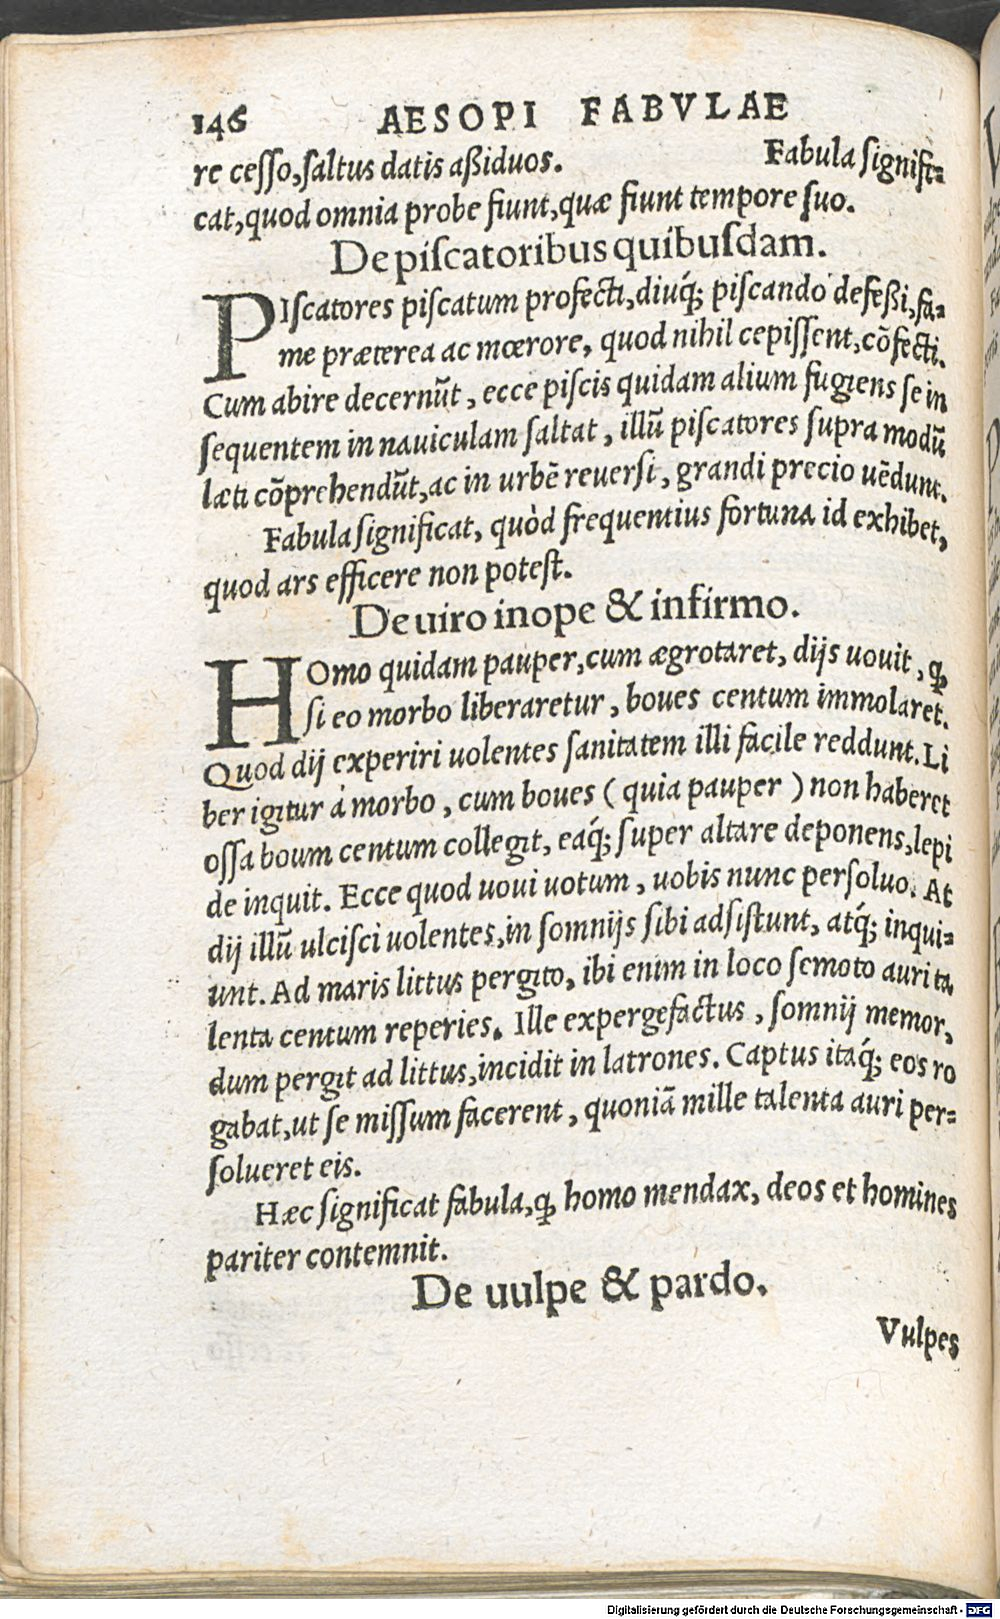 146 AESOPI FABVLAE
re cesso,saltus datis aßiduos. Fabula signifi-
cat,quod omnia probe fiunt,quæ fiunt tempore suo.
De piscatoribus quibusdam.
PIscatores piscatum profecti,diuq́; piscando defeßi,fa-
me præterea ac mœrore, quod nihil cepissent,cõfecti.
Cum abire decernũt, ecce piscis quidam alium fugiens se in
sequentem in nauiculam saltat, illũ piscatores supra modũ
læti cõprehendũt,ac in urbẽ reuersi, grandi precio uẽdunt.
Fabula significat, quòd frequentius fortuna id exhibet,
quod ars efficere non potest.
De uiro inope & infirmo.
HOmo quidam pauper,cum ægrotaret, dijs uouit, ꝙ
si eo morbo liberaretur, boues centum immolaret.
Quod dij experiri uolentes sanitatem illi facile reddunt. Li
ber igitur à morbo, cum boues (quia pauper) non haberet
ossa boum centum collegit, eaq́; super altare deponens,lepi
de inquit. Ecce quod uoui uotum, uobis nunc persoluo. At
dij illũ ulcisci uolentes,in somnijs sibi adsistunt, atq́; inqui-
unt. Ad maris littus pergito, ibi enim in loco semoto auri ta
lenta centum reperies. Ille expergefactus, somnij memor,
dum pergit ad littus,incidit in latrones. Captus itaq́; eos ro
gabat,ut se missum facerent, quoniã mille talenta auri per-
solueret eis.
Hæc significat fabula,ꝙ homo mendax, deos et homines
pariter contemnit.
De uulpe & pardo.
Vulpes
Digitalisierung gefördert durch die Deutsche Forschungsgemeinschaft - DFG